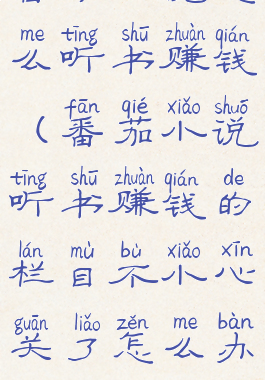 me tīng shū zhuàn qián
么听书赚钱
fān qié xiǎo shuō
（番茄小说
tīng shū zhuàn qián de
听书赚钱的
lán mù bù xiǎo xīn
栏目不小心
guān liǎo zěn me bàn
关了怎么办